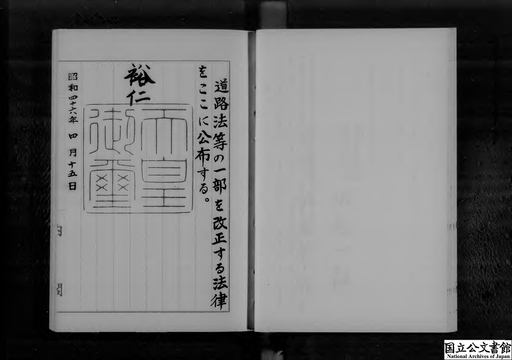 道路法等の一部を改正する法律
をここに公布する。
裕仁
天皇
御璽
昭和四十六年四月十五日
国立公文書館
National Archives of Japan